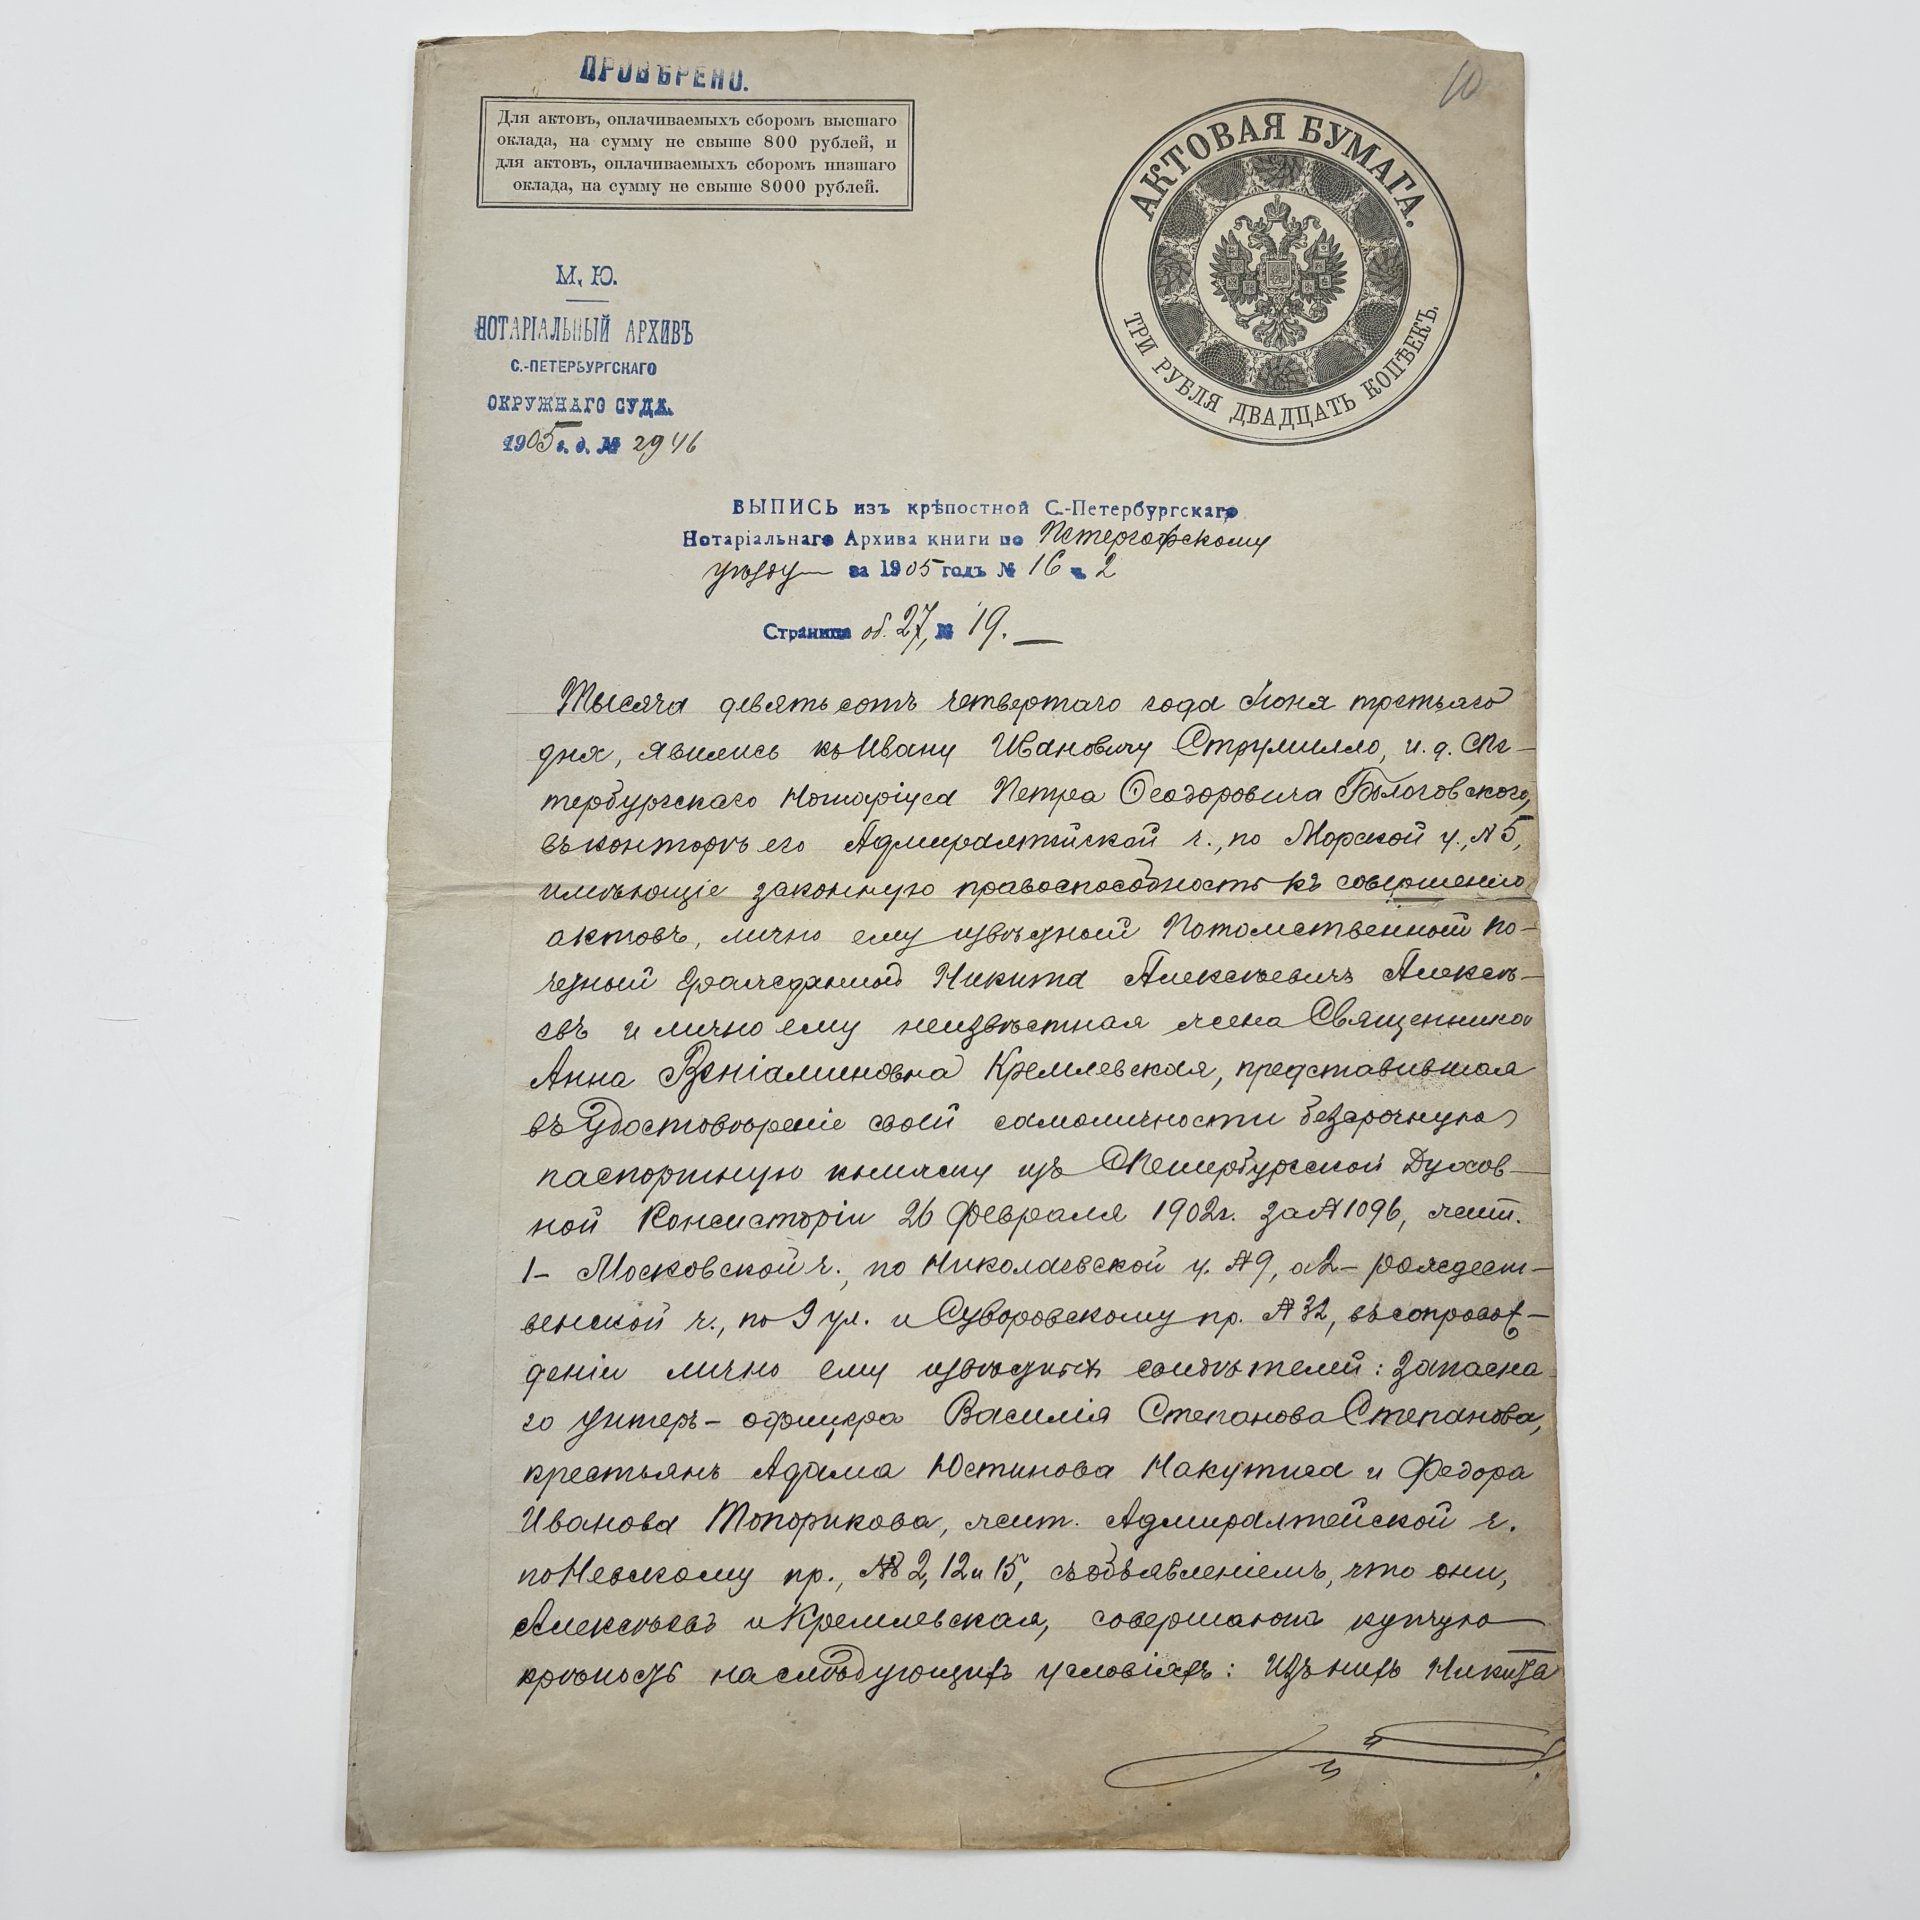 ПРОВѢРЕНО.
10
Для актовъ, оплачиваемыхъ сборомъ высшаго
оклада, на сумму не свыше 800 рублей, и
для актовъ, оплачиваемыхъ сборомъ низшаго
оклада, на сумму не свыше 8000 рублей.
АКТОВАЯ БУМАГА.
ТРИ РУБЛЯ ДВАДЦАТЬ КОПѢЕКЪ.
М. Ю.
НОТАРІАЛЬНЫЙ АРХИВЪ
С.-ПЕТЕРБУРГСКАГО
ОКРУЖНАГО СУДА.
1905 г. д. № 2946
ВЫПИСЬ изъ крѣпостной С.-Петербургскаго
Нотаріальнаго Архива книги по Петергофскому
уѣзду за 1905 годъ № 16 ч. 2
Страница об. 27, № 19.
Тысяча девятьсотъ четвертаго года Іюня третьяго
дня, явились къ Ивану Ивановичу Струмилло, и. д. СПе-
тербургскаго Нотаріуса Петра Ѳеодоровича
въ конторѣ его Адмиралтейской ч., по Морской у., № 5,
имѣющіе законную правоспособность къ совершенію
актовъ, лично ему извѣстный Потомственный по-
четный Гражданинъ Никита Алексѣевичъ Алексѣ-
евъ и лично ему неизвѣстная жена Священника
Анна Веніаминовна Кремлевская, представившая
въ удостовѣреніе своей самоличности безсрочную
паспортную книжку изъ СПетербургской Духов-
ной Консисторіи 26 Февраля 1902 г. за № 1096, жит.
1- Московской ч., по Николаевской у. № 9, а 2- Рождест-
венской ч., по 9 ул. и Суворовскому пр. № 32, въ сопровож-
деніи лично ему извѣстныхъ свидѣтелей: запасна-
го унтеръ-офицера Василія Степанова Степанова,
крестьянъ Адама Юстинова Накутиса и Федора
Иванова Топорикова, жит. Адмиралтейской ч.
по Невскому пр., №№ 2, 12 и 15, съ объявленіемъ, что они,
Алексѣевъ и Кремлевская, совершаютъ купчую
крѣпость на слѣдующихъ условіяхъ: изъ нихъ Никита